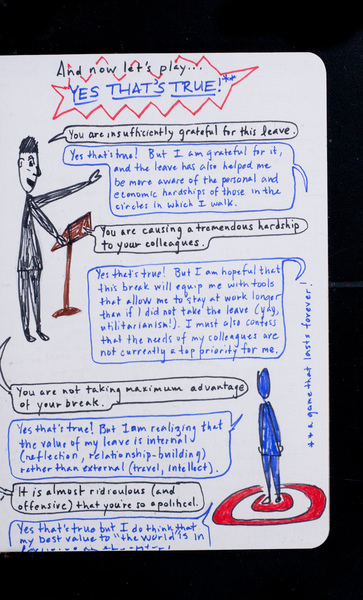 And now let's play...
YES THAT'S TRUE!**
You are insufficiently grateful for this leave.
Yes that's true! But I am grateful for it,
and the leave has also helped me
be more aware of the personal and
economic hardships of those in the
circles in which I walk.
You are causing a tremendous hardship
to your colleagues.
Yes that's true! But I am hopeful that
this break will equip me with tools
that allow me to stay at work longer
than if I did not take the leave (yay,
utilitarianism!). I must also confess
that the needs of my colleagues are
not currently a top priority for me.
**a game that lasts forever!
You are not taking maximum advantage
of your break.
Yes that's true! But I am realizing that
the value of my leave is internal
(reflection, relationship-building)
rather than external (travel, intellect).
It is almost ridiculous (and
offensive) that you're so apolitical.
Yes that's true but I do think that
my best value to "the world" is in